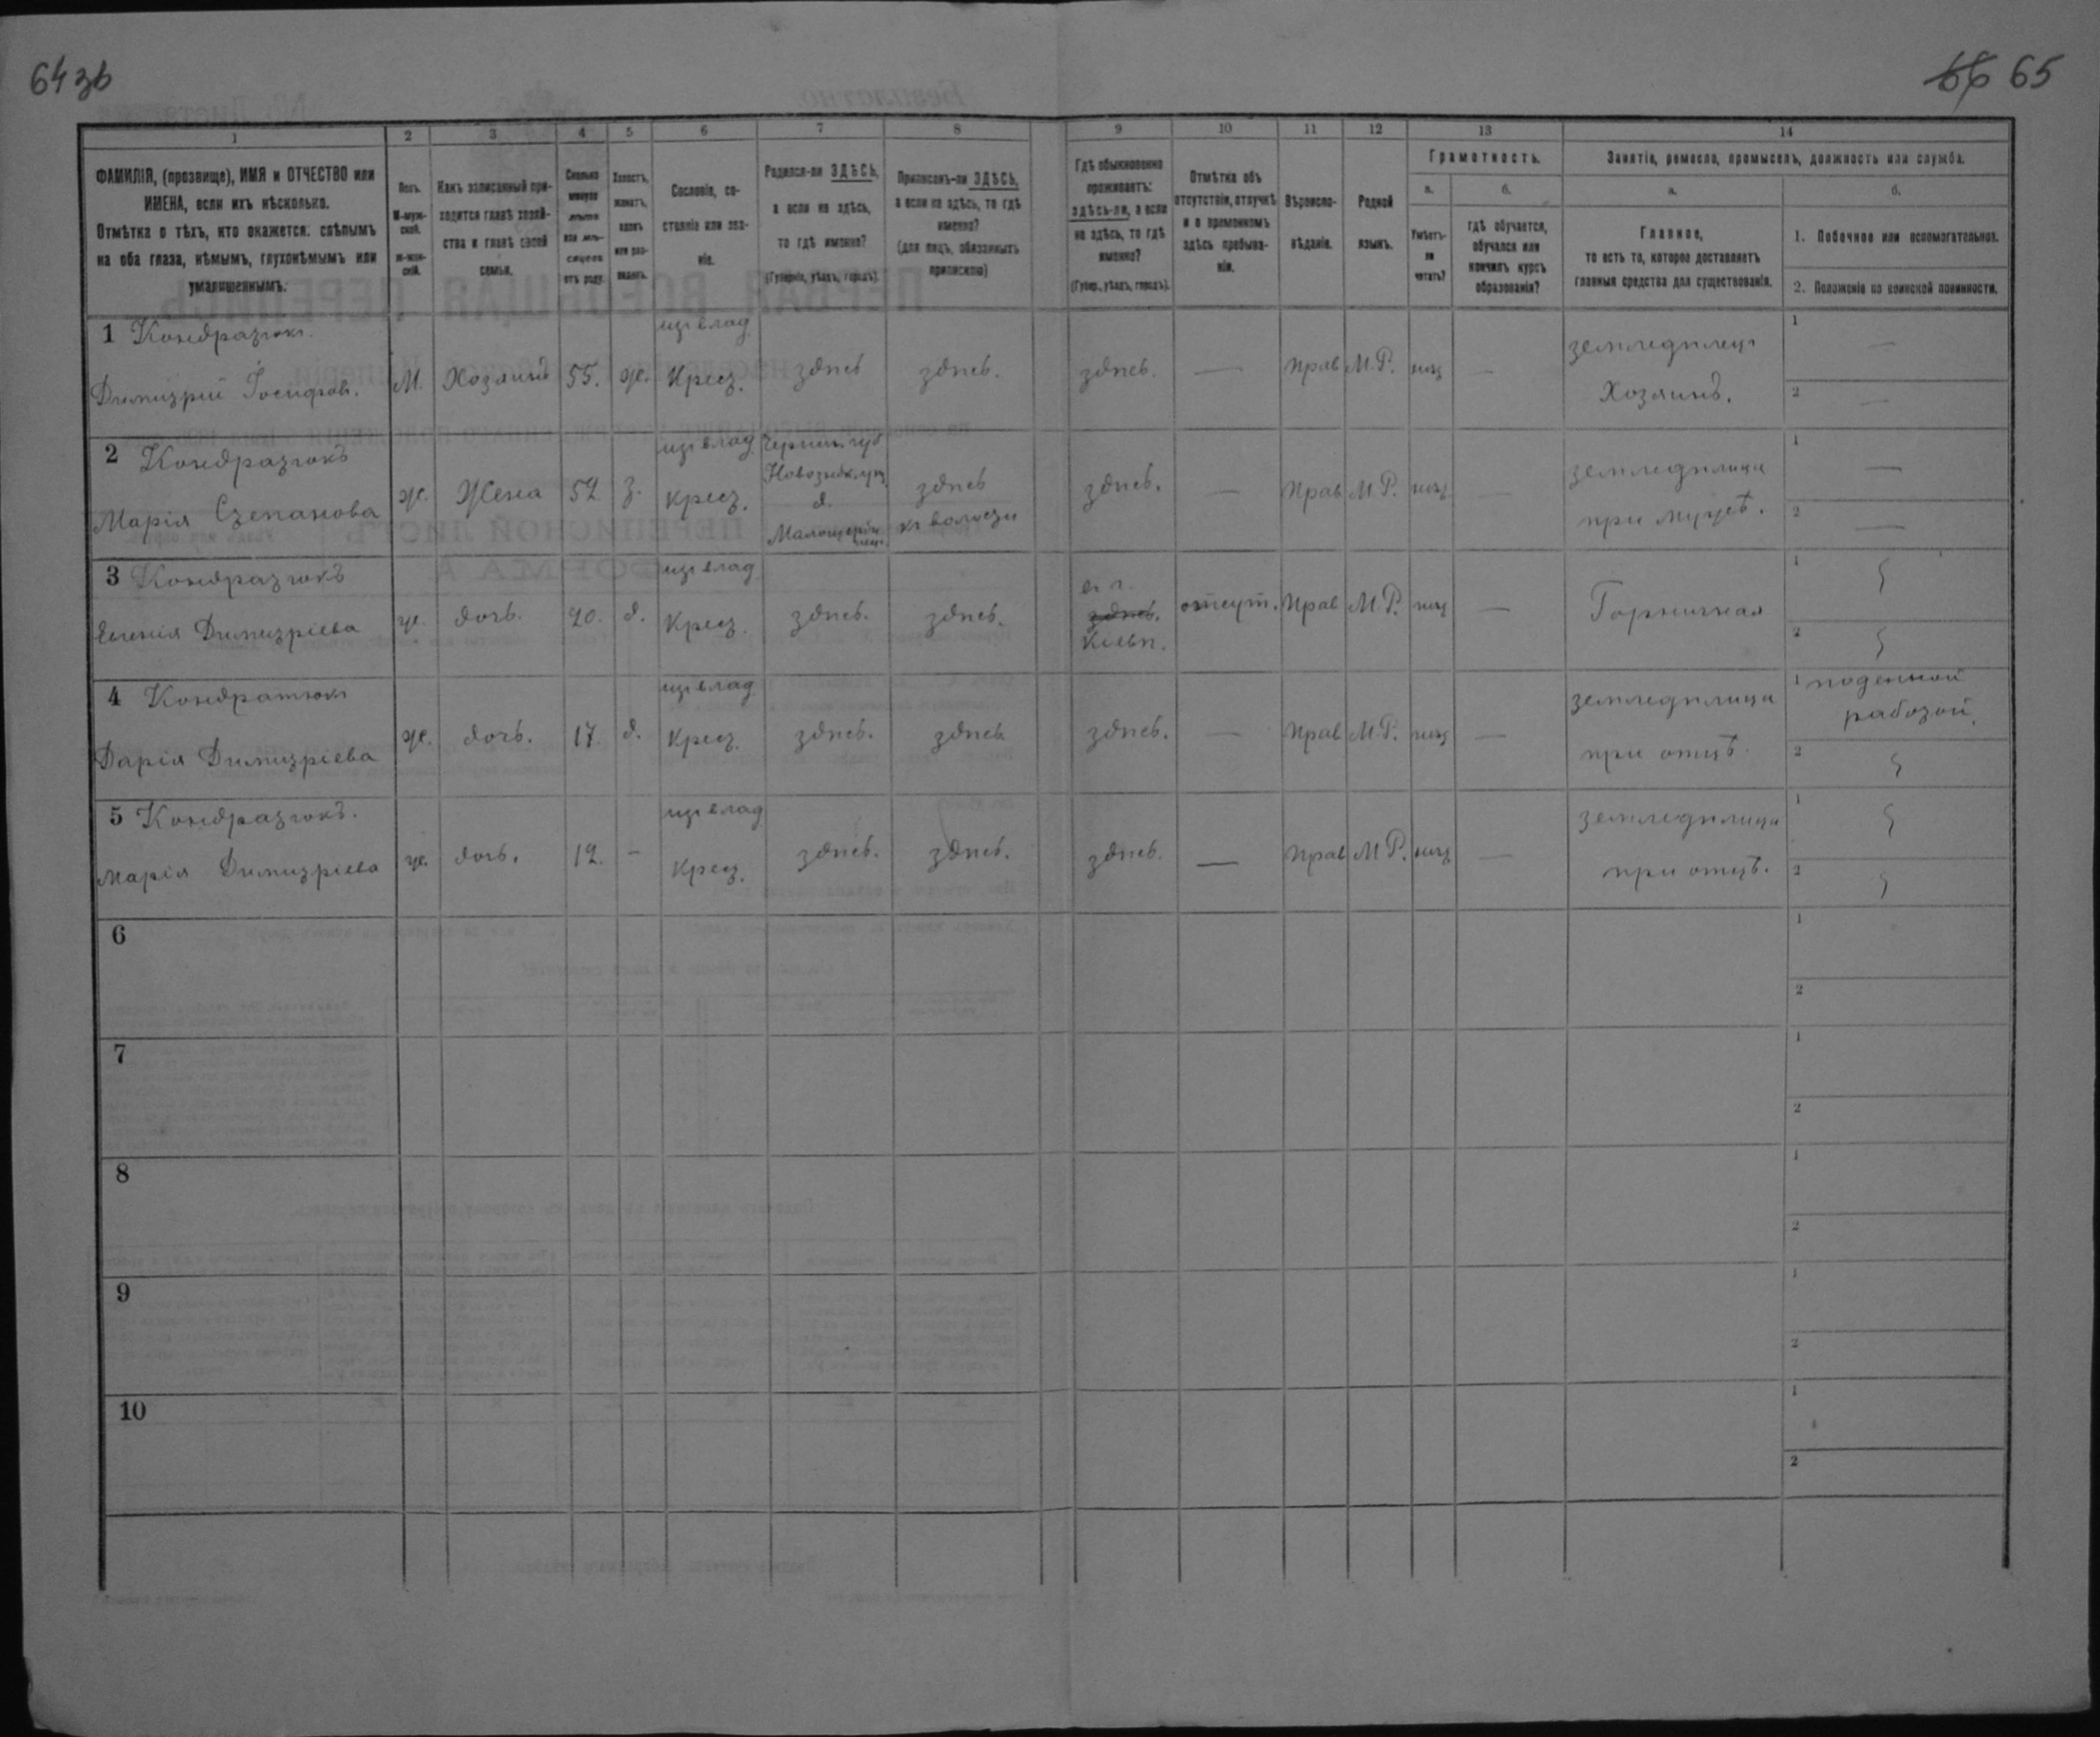 64 зв
66 65
1 2 3 4 5 6 7 8 9 10 11 12 13 14
ФАМИЛІЯ, (прозвище), ИМЯ и ОТЧЕСТВО или
ИМЕНА, если ихъ нѣсколько.
Отмѣтка о тѣхъ, кто окажется: слѣпымъ
на оба глаза, нѣмымъ, глухонѣмымъ или
умалишеннымъ.
Полъ.
М-муж-
ской.
ж-жен-
скій.
Какъ записанный при-
ходится главѣ хозяй-
ства и главѣ своей
семьи.
Сколько
минуло
лѣтъ
или мѣ-
сяцевъ
отъ роду.
Холостъ,
женатъ,
вдовъ
или раз-
веденъ.
Сословіе, со-
стояніе или зва-
ніе.
Родился-ли ЗДѢСЬ,
а если не здѣсь,
то гдѣ именно?
(Губернія, уѣздъ, городъ).
Приписанъ-ли ЗДѢСЬ,
а если не здѣсь, то гдѣ
именно?
(для лицъ, обязанныхъ
припискою)
Гдѣ обыкновенно
проживаетъ:
здѣсь-ли, а если
не здѣсь, то гдѣ
именно?
(Губер., уѣздъ, городъ).
Отмѣтка объ
отсутствіи, отлучкѣ
и о временномъ
здѣсь пребыва-
ніи.
Вѣроиспо-
вѣданіе.
Родной
языкъ.
Грамотность.
а. б.
Умѣетъ-
ли
читать?
Гдѣ обучается,
обучался или
кончилъ курсъ
образованія?
Занятіе, ремесло, промыселъ, должность или служба.
а. б.
Главное,
то есть то, которое доставляетъ
главныя средства для существованія.
1. Побочное или вспомогательное.
2. Положеніе по воинской повинности.
1 Кондратюкъ
Димитрій Іосифов. М. Хозяинъ 55. ж. Крест. здѣсь здѣсь. здѣсь. — Прав М.Р. нѣт —
владѣ
земледѣлецъ
Хозяинъ.
1 —
2 —
2 Кондратюкъ
Марія Степанова ж. Жена 52 з. Крест.
владѣ
Черниг. губ
Новозыбк. уѣз
д.
здѣсь
къ волости
здѣсь. — Прав М.Р. нѣт —
земледѣлица
при мужѣ.
1 —
2 —
3 Кондратюкъ
Евгенія Димитріева ж. дочь. 20. д. Крест. здѣсь. здѣсь.
въ г.
здѣсь.
Кіевѣ.
отсут. Прав М.Р. нѣт —
Горничная
1
2
4 Кондратюкъ
Дарія Димитріева ж. дочь. 17. д. Крест. здѣсь. здѣсь здѣсь. — Прав М.Р. нѣт —
земледѣлица
при отцѣ.
1 поденной
работой.
2
5 Кондратюкъ.
Марія Димитріева ж. дочь. 12. – Крест. здѣсь. здѣсь. здѣсь. — Прав М.Р. нѣт —
земледѣлица
при отцѣ.
1
2
6
1
2
7
1
2
8
1
2
9
1
2
10
1
2